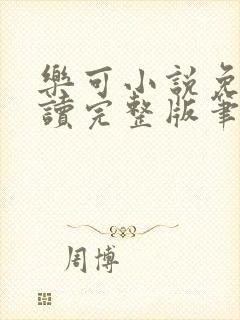 樂可小說免
讀完整版筆
周博